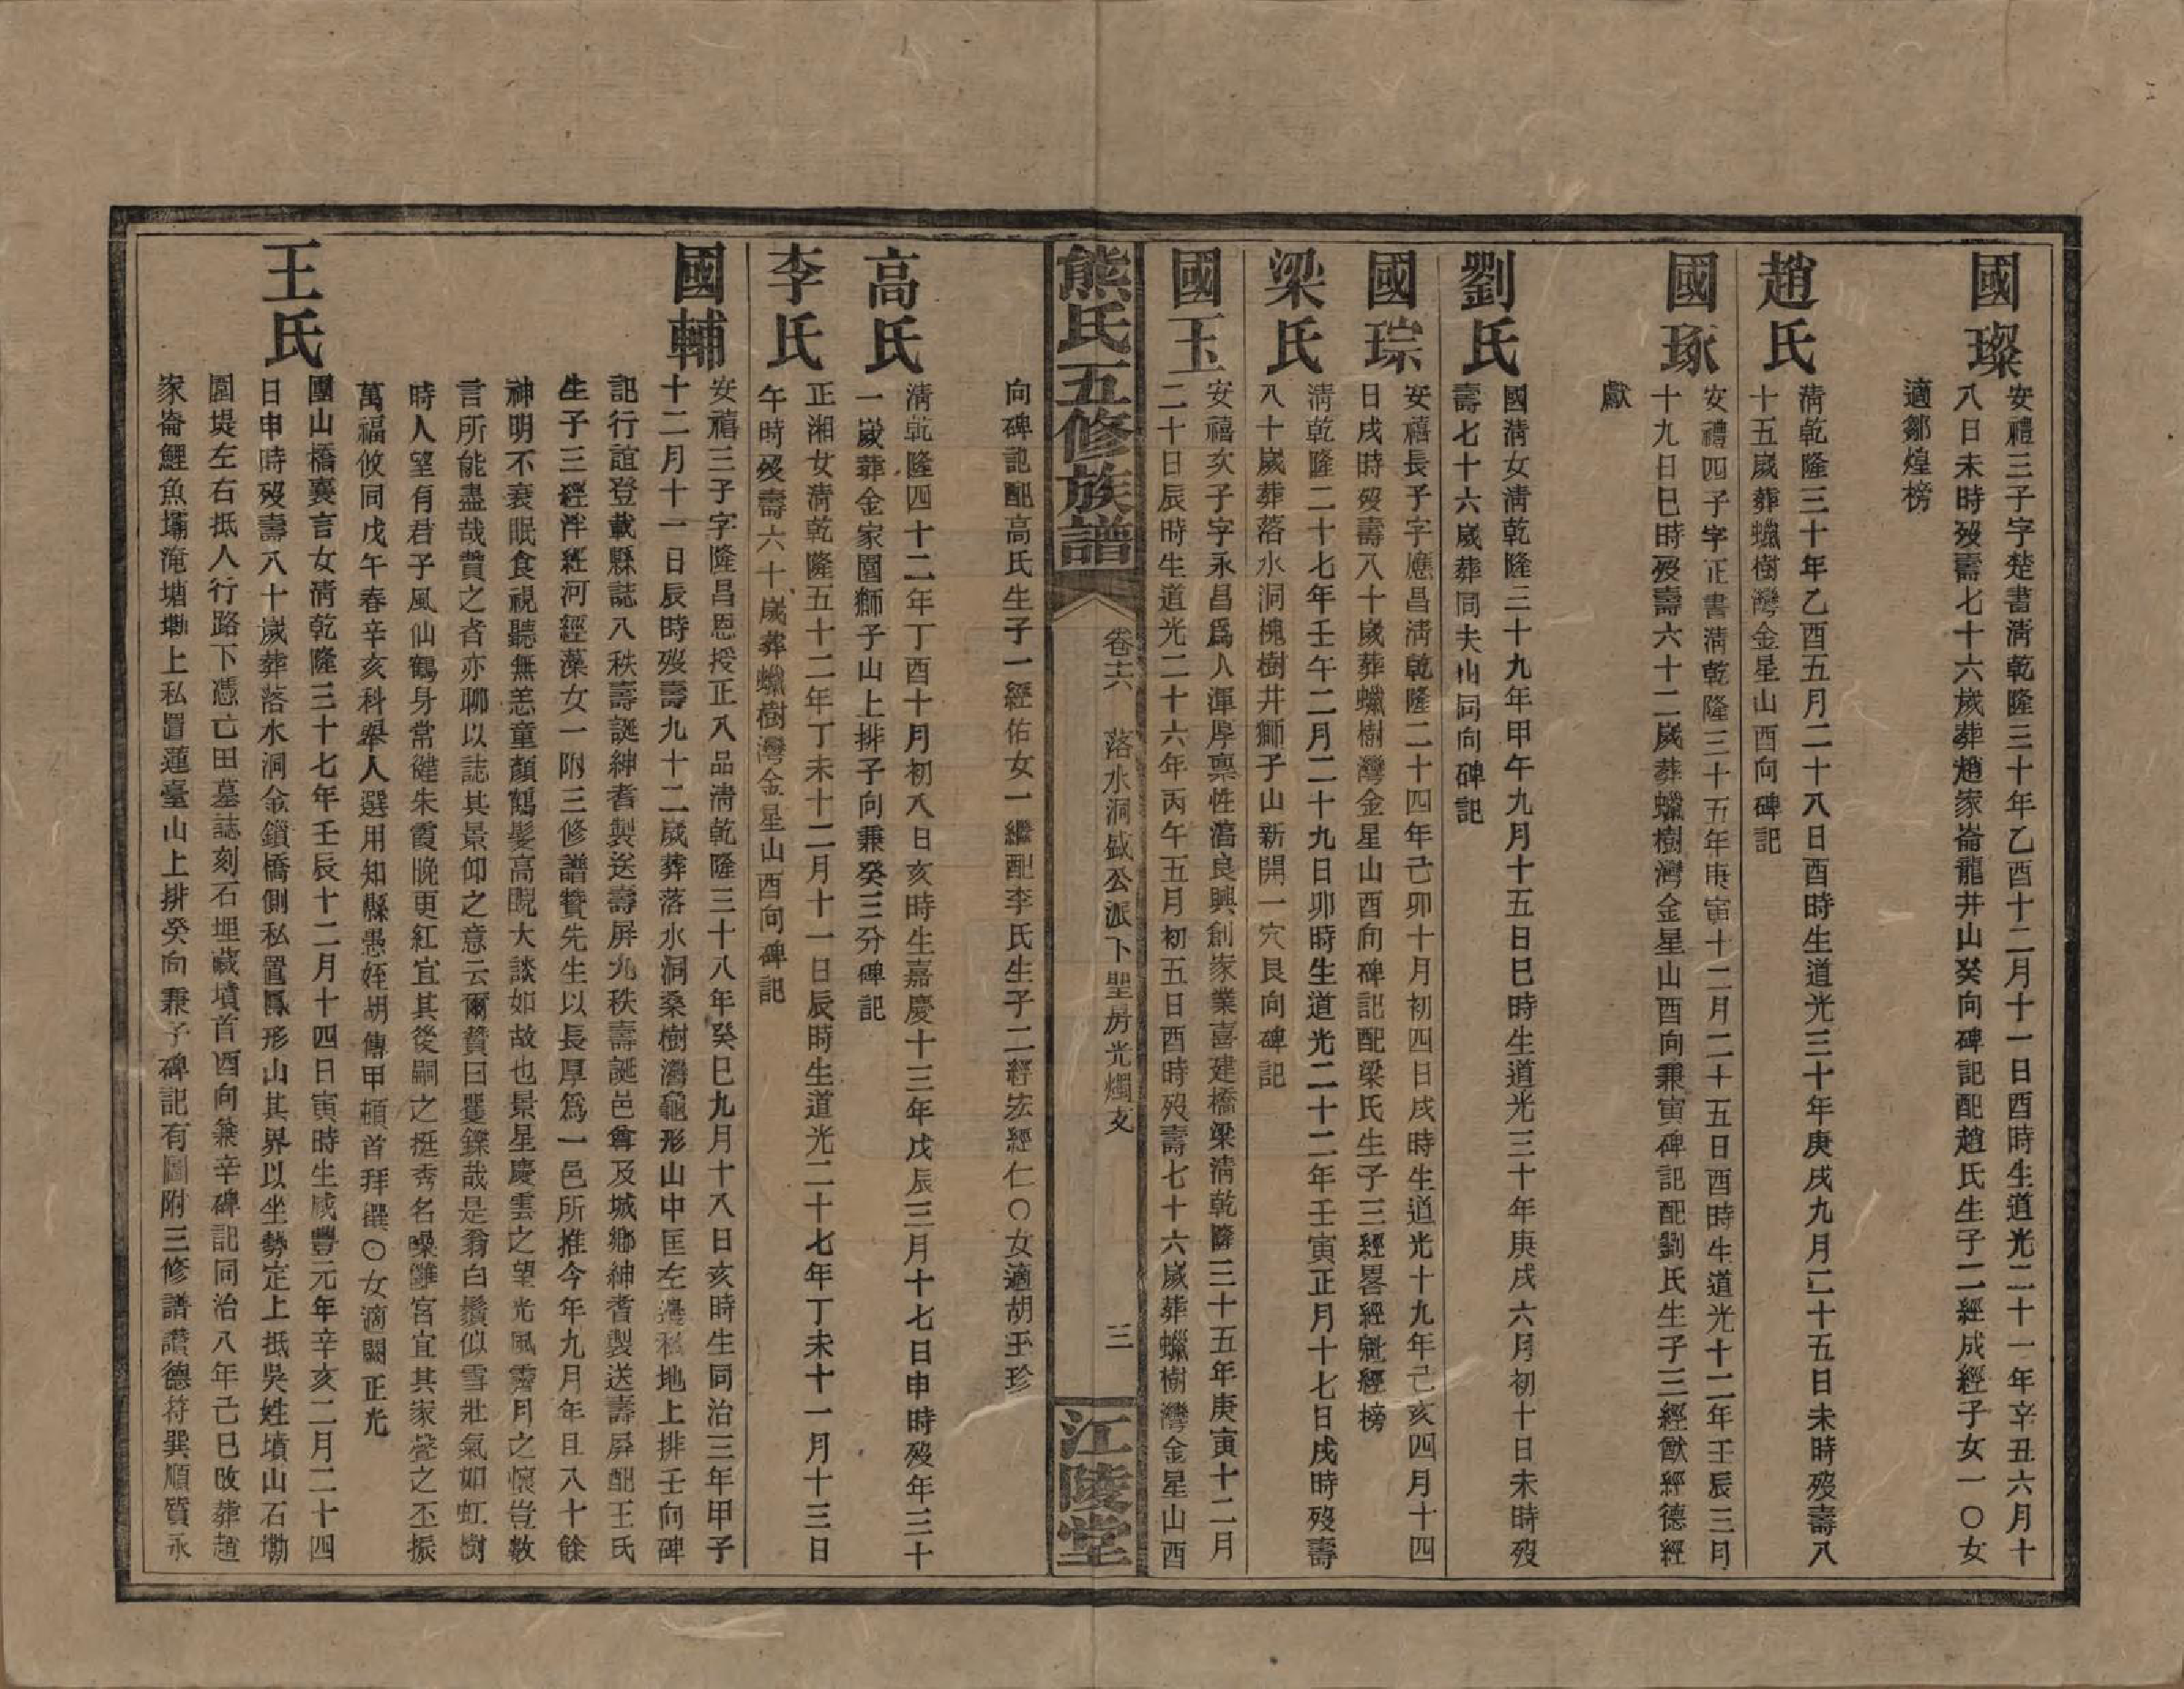 國璨
安禮三子字楚書清乾隆三十年乙酉十二月十一日酉時生道光二十一年辛丑六月十
八日未時歿壽七十六歲葬趙家崙龍井山癸向碑記配趙氏生子二經成經子女一〇女
適鄒煌榜
趙氏
清乾隆三十年乙酉五月二十八日酉時生道光三十年庚戌九月二十五日未時歿壽八
十五歲葬蠟樹灣金星山酉向碑記
國琢
安禮四子字正書清乾隆三十五年庚寅十二月二十五日酉時生道光十二年壬辰三月
十九日巳時歿壽六十二歲葬蠟樹灣金星山酉向兼寅碑記配劉氏生子三經猷經德經
獻
劉氏
國清女清乾隆三十九年甲午九月十五日巳時生道光三十年庚戌六月初十日未時歿
壽七十六歲葬同夫山同向碑記
國琮
安禧長子字應昌清乾隆二十四年己卯十月初四日戌時生道光十九年己亥四月十四
日戌時歿壽八十歲葬蠟樹灣金星山酉向碑記配梁氏生子三經畧經魁經榜
梁氏
清乾隆二十七年壬午二月二十九日卯時生道光二十二年壬寅正月十七日戌時歿壽
八十歲葬落水洞槐樹井獅子山新開一穴艮向碑記
國玉
安禧次子字永昌爲人渾厚禀性滔良興創家業喜建橋梁清乾隆三十五年庚寅十二月
二十日辰時生道光二十六年丙午五月初五日酉時歿壽七十六歲葬蠟樹灣金星山酉
熊氏五修族譜
卷十六 落水洞盛公派下聖房光燭支 三
江陵堂
向碑記配高氏生子一經佑女一繼配李氏生子二經宏經仁〇女適胡玉珍
高氏
清乾隆四十二年丁酉十月初八日亥時生嘉慶十三年戊辰三月十七日申時歿年三十
一歲葬金家園獅子山上排子向兼癸三分碑記
李氏
正湘女清乾隆五十二年丁未十二月十一日辰時生道光二十七年丁未十一月十三日
午時歿壽六十歲葬蠟樹灣金星山酉向碑記
國輔
安禧三子字隆昌恩授正八品清乾隆三十八年癸巳九月十八日亥時生同治三年甲子
十二月十一日辰時歿壽九十二歲葬落水洞桑樹灣龜形山中匡左邊私地上排壬向碑
記行誼登載縣誌八秩壽誕紳耆製送壽屏九秩壽誕邑尊及城鄉紳耆製送壽屏配王氏
生子三經泮經河經藻女一附三修譜贊先生以長厚爲一邑所推今年九月年且八十餘
神明不衰眠食視聽無恙童顏鶴髮高睨大談如故也景星慶雲之望光風霽月之懷豈數
言所能盡哉贊之者亦聊以誌其景仰之意云爾贊曰矍鑠哉是翁白鬚似雪壯氣如虹樹
時人望有君子風仙鶴身常健朱霞晚更紅宜其後嗣之挺秀名噪黌宮宜其家聲之丕振
萬福攸同戊午春辛亥科舉人選用知縣愚姪胡傳甲頓首拜撰〇女適闕正光
王氏
團山橋襄言女清乾隆三十七年壬辰十二月十四日寅時生咸豐元年辛亥二月二十四
日申時歿壽八十歲葬落水洞金鎖橋側私置鳳形山其界以坐勢定上抵吳姓墳山石墈
園堤左右抵人行路下憑己田墓誌刻石埋藏墳首酉向兼辛碑記同治八年己巳改葬趙
家崙鯉魚壩淹塘墈上私置蓮臺山上排癸向兼子碑記有圖附三修譜讚德符巽順質永